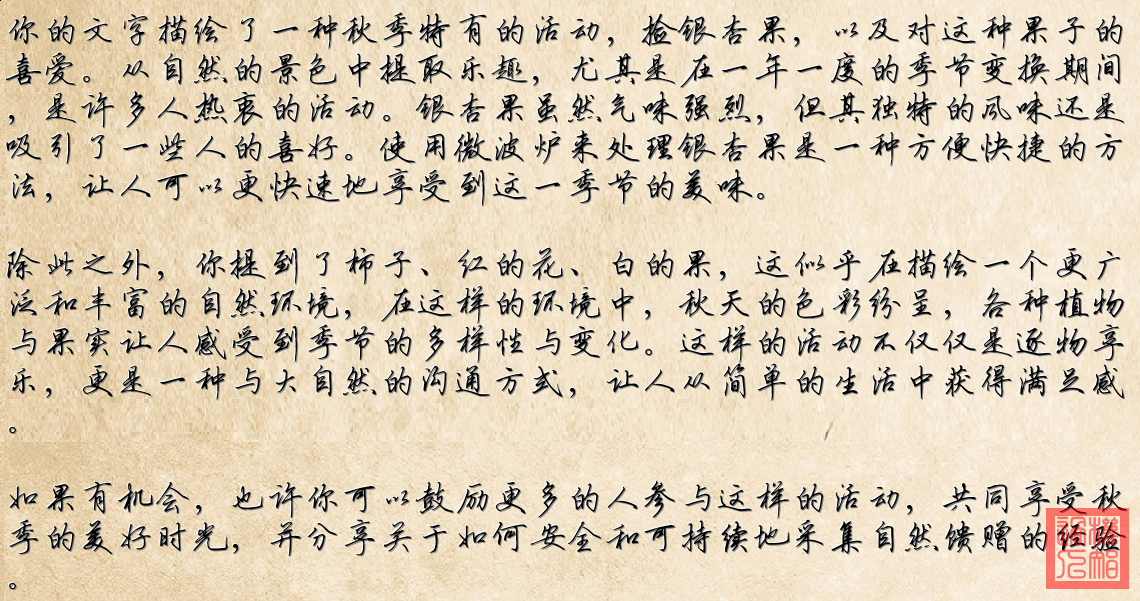 你的文字描绘了一种秋季特有的活动，捡银杏果，以及对这种果子的
喜爱。从自然的景色中提取乐趣，尤其是在一年一度的季节变换期间
，是许多人热衷的活动。银杏果虽然气味强烈，但其独特的风味还是
吸引了一些人的喜好。使用微波炉来处理银杏果是一种方便快捷的方
法，让人可以更快速地享受到这一季节的美味。
除此之外，你提到了柿子、红的花、白的果，这似乎在描绘一个更广
泛和丰富的自然环境，在这样的环境中，秋天的色彩纷呈，各种植物
与果实让人感受到季节的多样性与变化。这样的活动不仅仅是逐物享
乐，更是一种与大自然的沟通方式，让人从简单的生活中获得满足感
。
如果有机会，也许你可以鼓励更多的人参与这样的活动，共同享受秋
季的美好时光，并分享关于如何安全和可持续地采集自然馈赠的经验
。